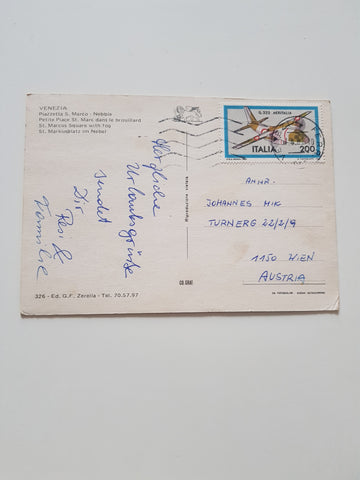 VENEZIA
Piazzetta S. Marco - Nebbia
Petite Place St. Marc dans le brouillard
St. Marcus Square with fog
St. Markusplatz im Nebel
Herzliche
Urlaubsgrüße
sendet
Dir
Resi &
Familie
326 - Ed. G.F. Zerella - Tel. 70.57.97
Riproduzione vietata
G.222 AERITALIA
ITALIA 200
JOHANNES HIK
TURNERG 22/2/9
1150 WIEN
AUSTRIA